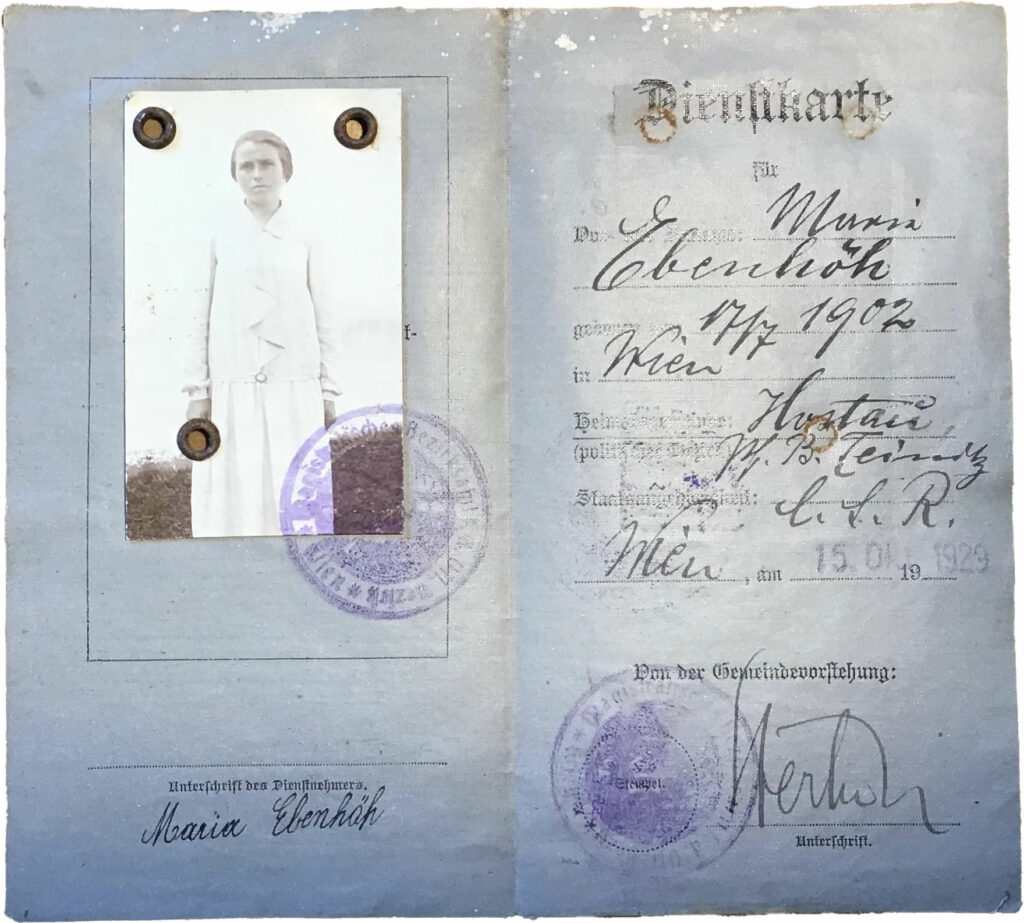 Unterschrift des Dienstnehmers.
Maria Ebenhöh
Dienstkarte
für
Vor- Maria
Ebenhöh
geboren 17/7 1902
in Wien
Hostau,
(politischer Bezirk) B. Teinitz
Staatsangehörigkeit: Č. S. R.
Wien, am 15. Okt. 1929 19
Von der Gemeindevorstehung:
Stempel.
Unterschrift.